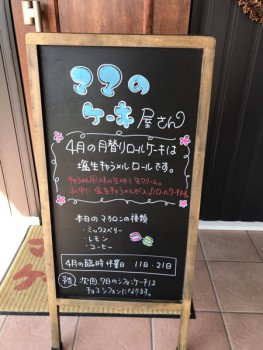 ママの
ケーキ屋さん
4月の月替りロールケーキは
塩生キャラメルロールです。
キャラメル風味の生地と生クリーム。
塩生キャラメルが入ったロールケーキです
本日のマカロンの種類
・ミックスベリー
・レモン
・コーヒー
4月の臨時休業日 11日・21日
予告 次回、7日のシフォンケーキは
チョコシフォンになります。
マ
ケ